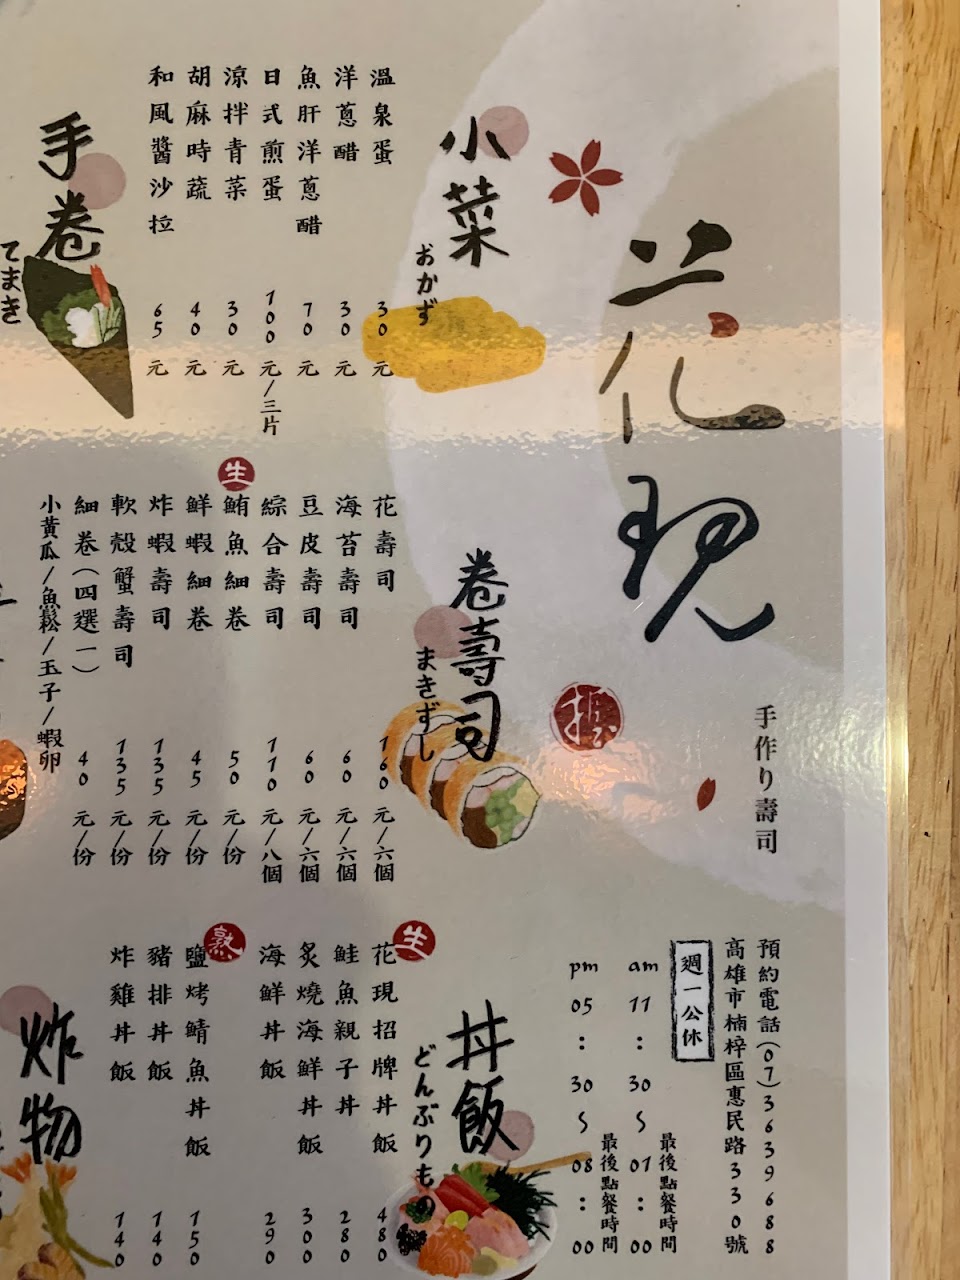 花現
手作り壽司
預約電話(07)3639688
高雄市楠梓區惠民路330號
週一公休
am 11:30~01:00
最後點餐時間
pm 05:30~08:00
最後點餐時間
小菜
おかず
溫泉蛋 30元
洋蔥醋 30元
魚肝洋蔥醋 70元
日式煎蛋 100元/三片
涼拌青菜 30元
胡麻時蔬 40元
和風醬沙拉 65元
手卷
てまき
卷壽司
まきずし
花壽司 160元/六個
海苔壽司 60元/六個
豆皮壽司 60元/六個
綜合壽司 110元/八個
生
鮪魚細卷 50元/份
鮮蝦細卷 45元/份
炸蝦壽司 135元/份
軟殼蟹壽司 135元/份
細卷(四選一) 40元/份
小黃瓜/魚鬆/玉子/蝦卵
丼飯
どんぶりもの
生
花現招牌丼飯 480
鮭魚親子丼 280
炙燒海鮮丼飯 300
海鮮丼飯 290
熟
鹽烤鯖魚丼飯 150
豬排丼飯 140
炸雞丼飯 140
炸物